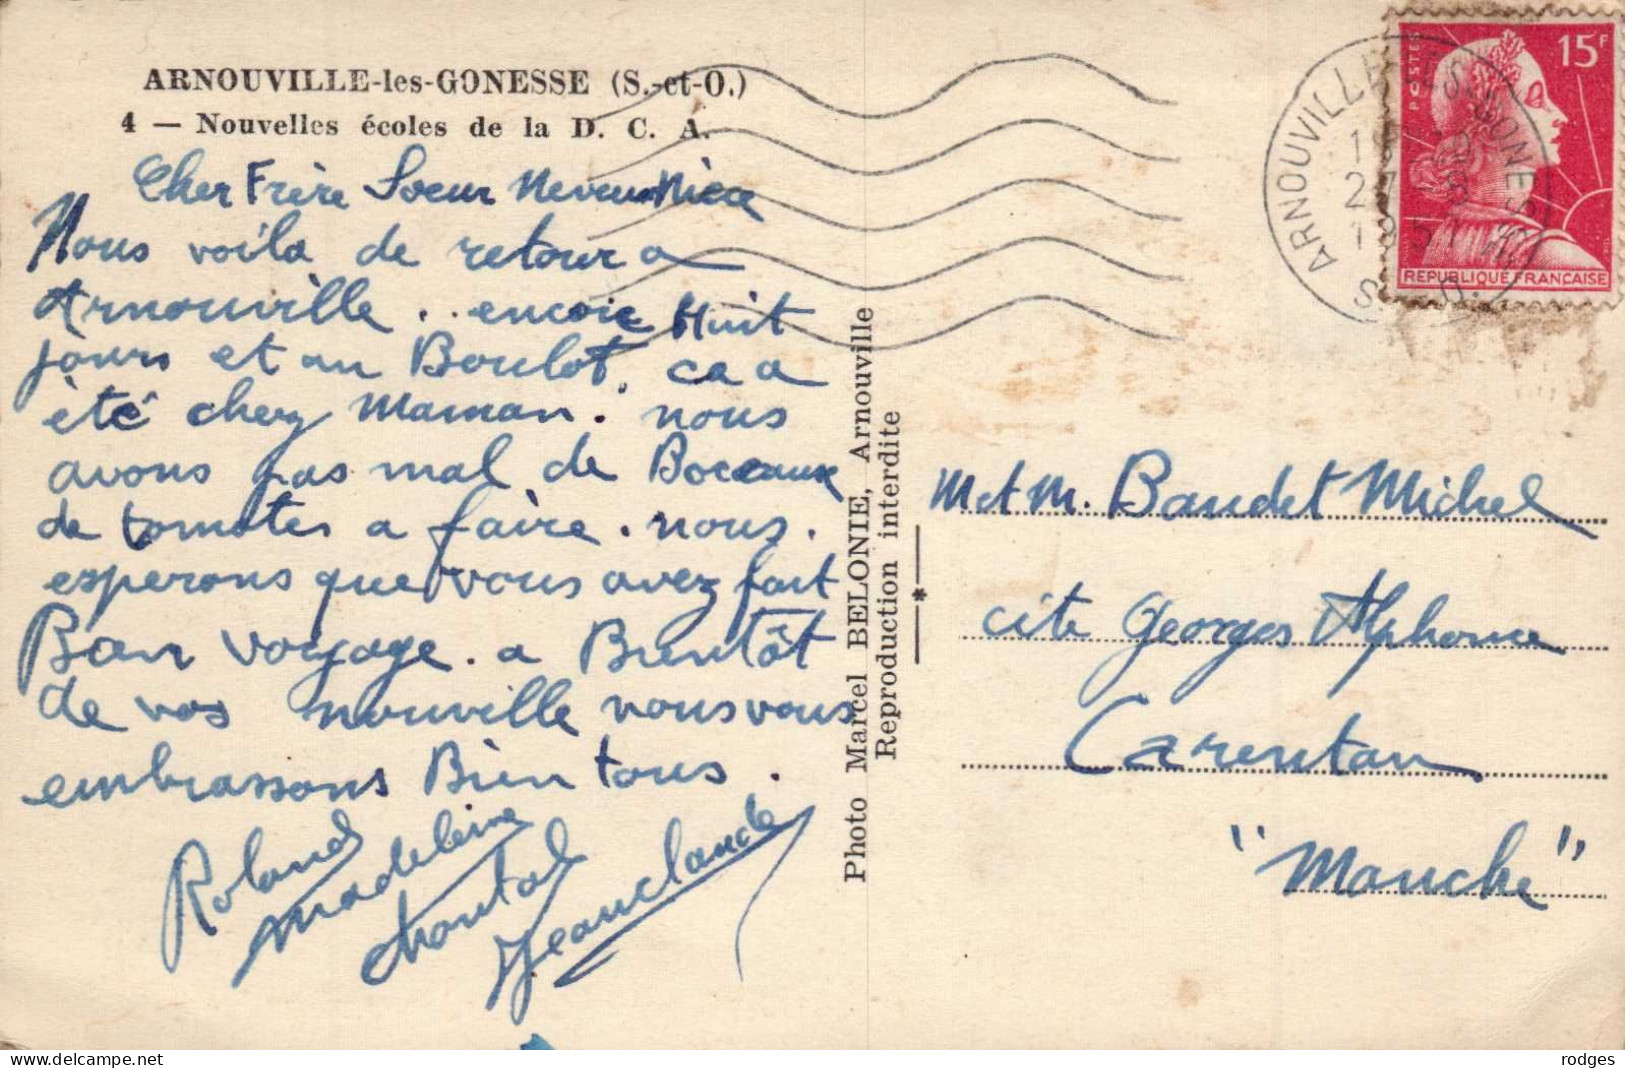 ARNOUVILLE-les-GONESSE (S.-et-O.)
4 — Nouvelles écoles de la D. C. A.
Cher Frère Soeur Neveu Nièce
Nous voila de retour a
Arnouville .. encore Huit
jours et au Boulot. ca a
été chez Maman. nous
avons pas mal de Boceaux
de tomates a faire. nous.
esperons que vous avez fait
Bon voyage. a Bientôt
de vos nouville nous vous
embrassons Bien tous.
Roland
Madeleine
chantal
Jeanclaude
Photo Marcel BELONIE, Arnouville
Reproduction interdite
*
M et M. Baudet Michel
cite Georges Alphonse
Carentan
"Manche"
POSTES
15F
REPUBLIQUE FRANÇAISE
ARNOUVILLE LES GONESSE
S. &amp; O.
delcampe.net
rodges